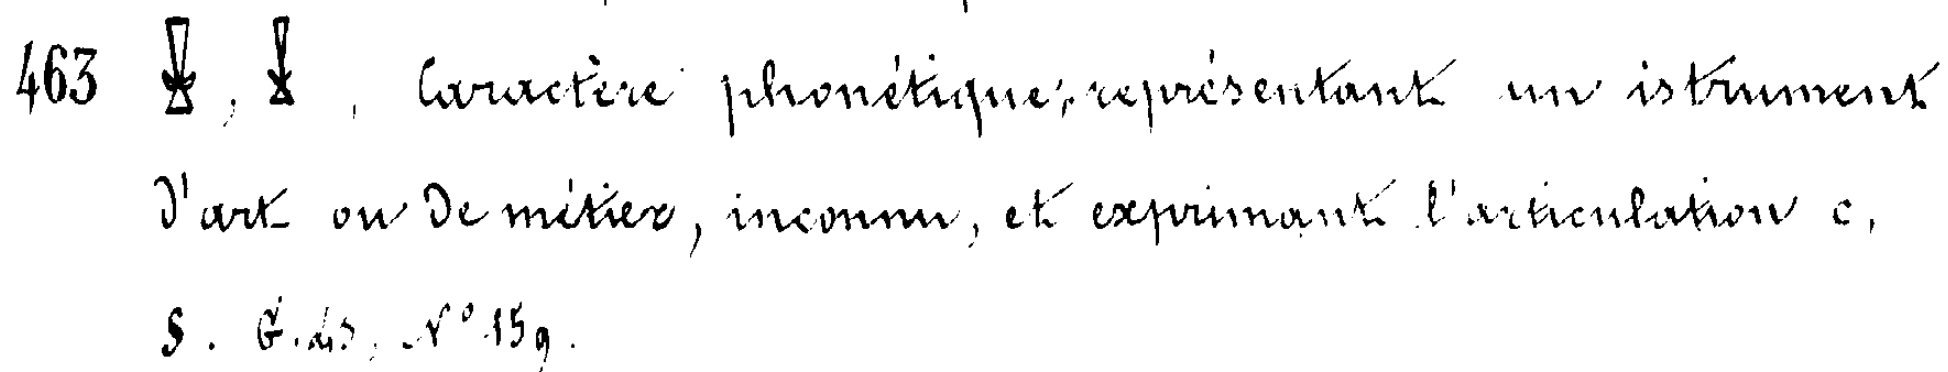 463 , , Caractère phonétique, représentant un istrument
d'art ou de métier, inconnu, et exprimant l'articulation c,
S. G. , N° 159.